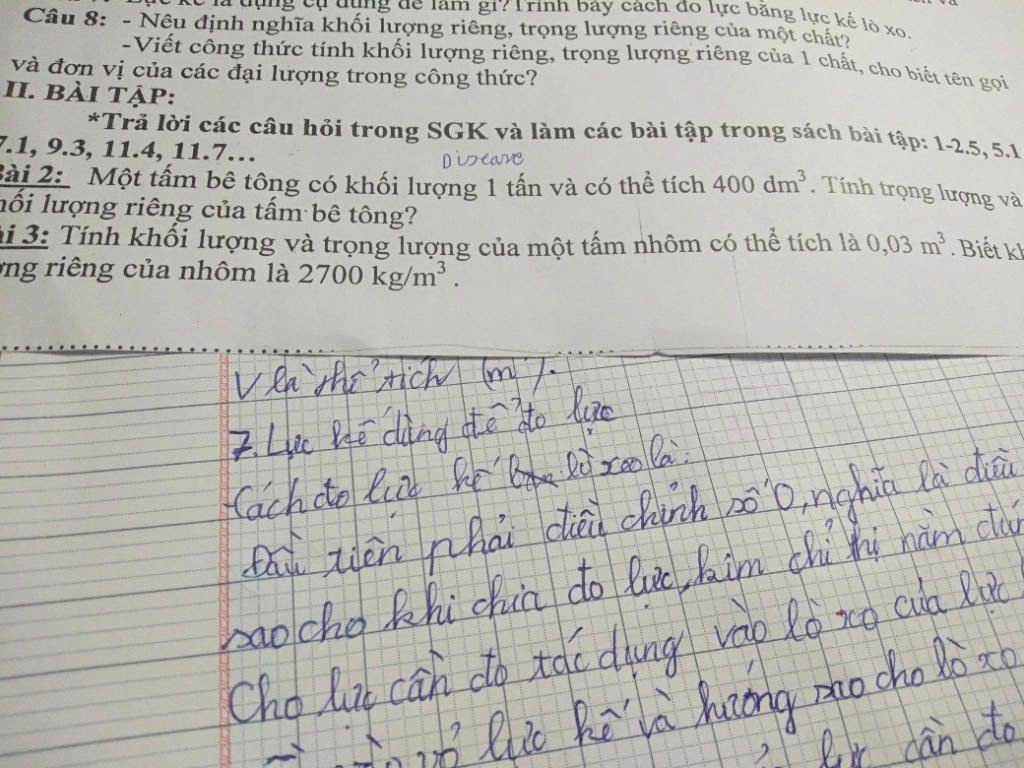 kế là dụng cụ dùng để làm gì? Trình bày cách đo lực bằng lực kế lò xo.
Câu 8: - Nêu định nghĩa khối lượng riêng, trọng lượng riêng của một chất?
-Viết công thức tính khối lượng riêng, trọng lượng riêng của 1 chất, cho biết tên gọi
và đơn vị của các đại lượng trong công thức?
II. BÀI TẬP:
*Trả lời các câu hỏi trong SGK và làm các bài tập trong sách bài tập: 1-2.5, 5.1
7.1, 9.3, 11.4, 11.7...
Bài 2: Một tấm bê tông có khối lượng 1 tấn và có thể tích 400 dm³. Tính trọng lượng và
hối lượng riêng của tấm bê tông?
ài 3: Tính khối lượng và trọng lượng của một tấm nhôm có thể tích là 0,03 m³. Biết kh
ng riêng của nhôm là 2700 kg/m³.
V là thể tích (m³).
7. Lực kế dùng để đo lực
Cách đo lực kế lò xoo là:
Đầu tiên phải điều chỉnh số 0, nghĩa là điều
sao cho khi chưa đo lực, kim chỉ thị nằm đún
Cho lực cần đo tác dụng vào lò xo của lực
lực kế và hướng sao cho lò xo
lực cần đo